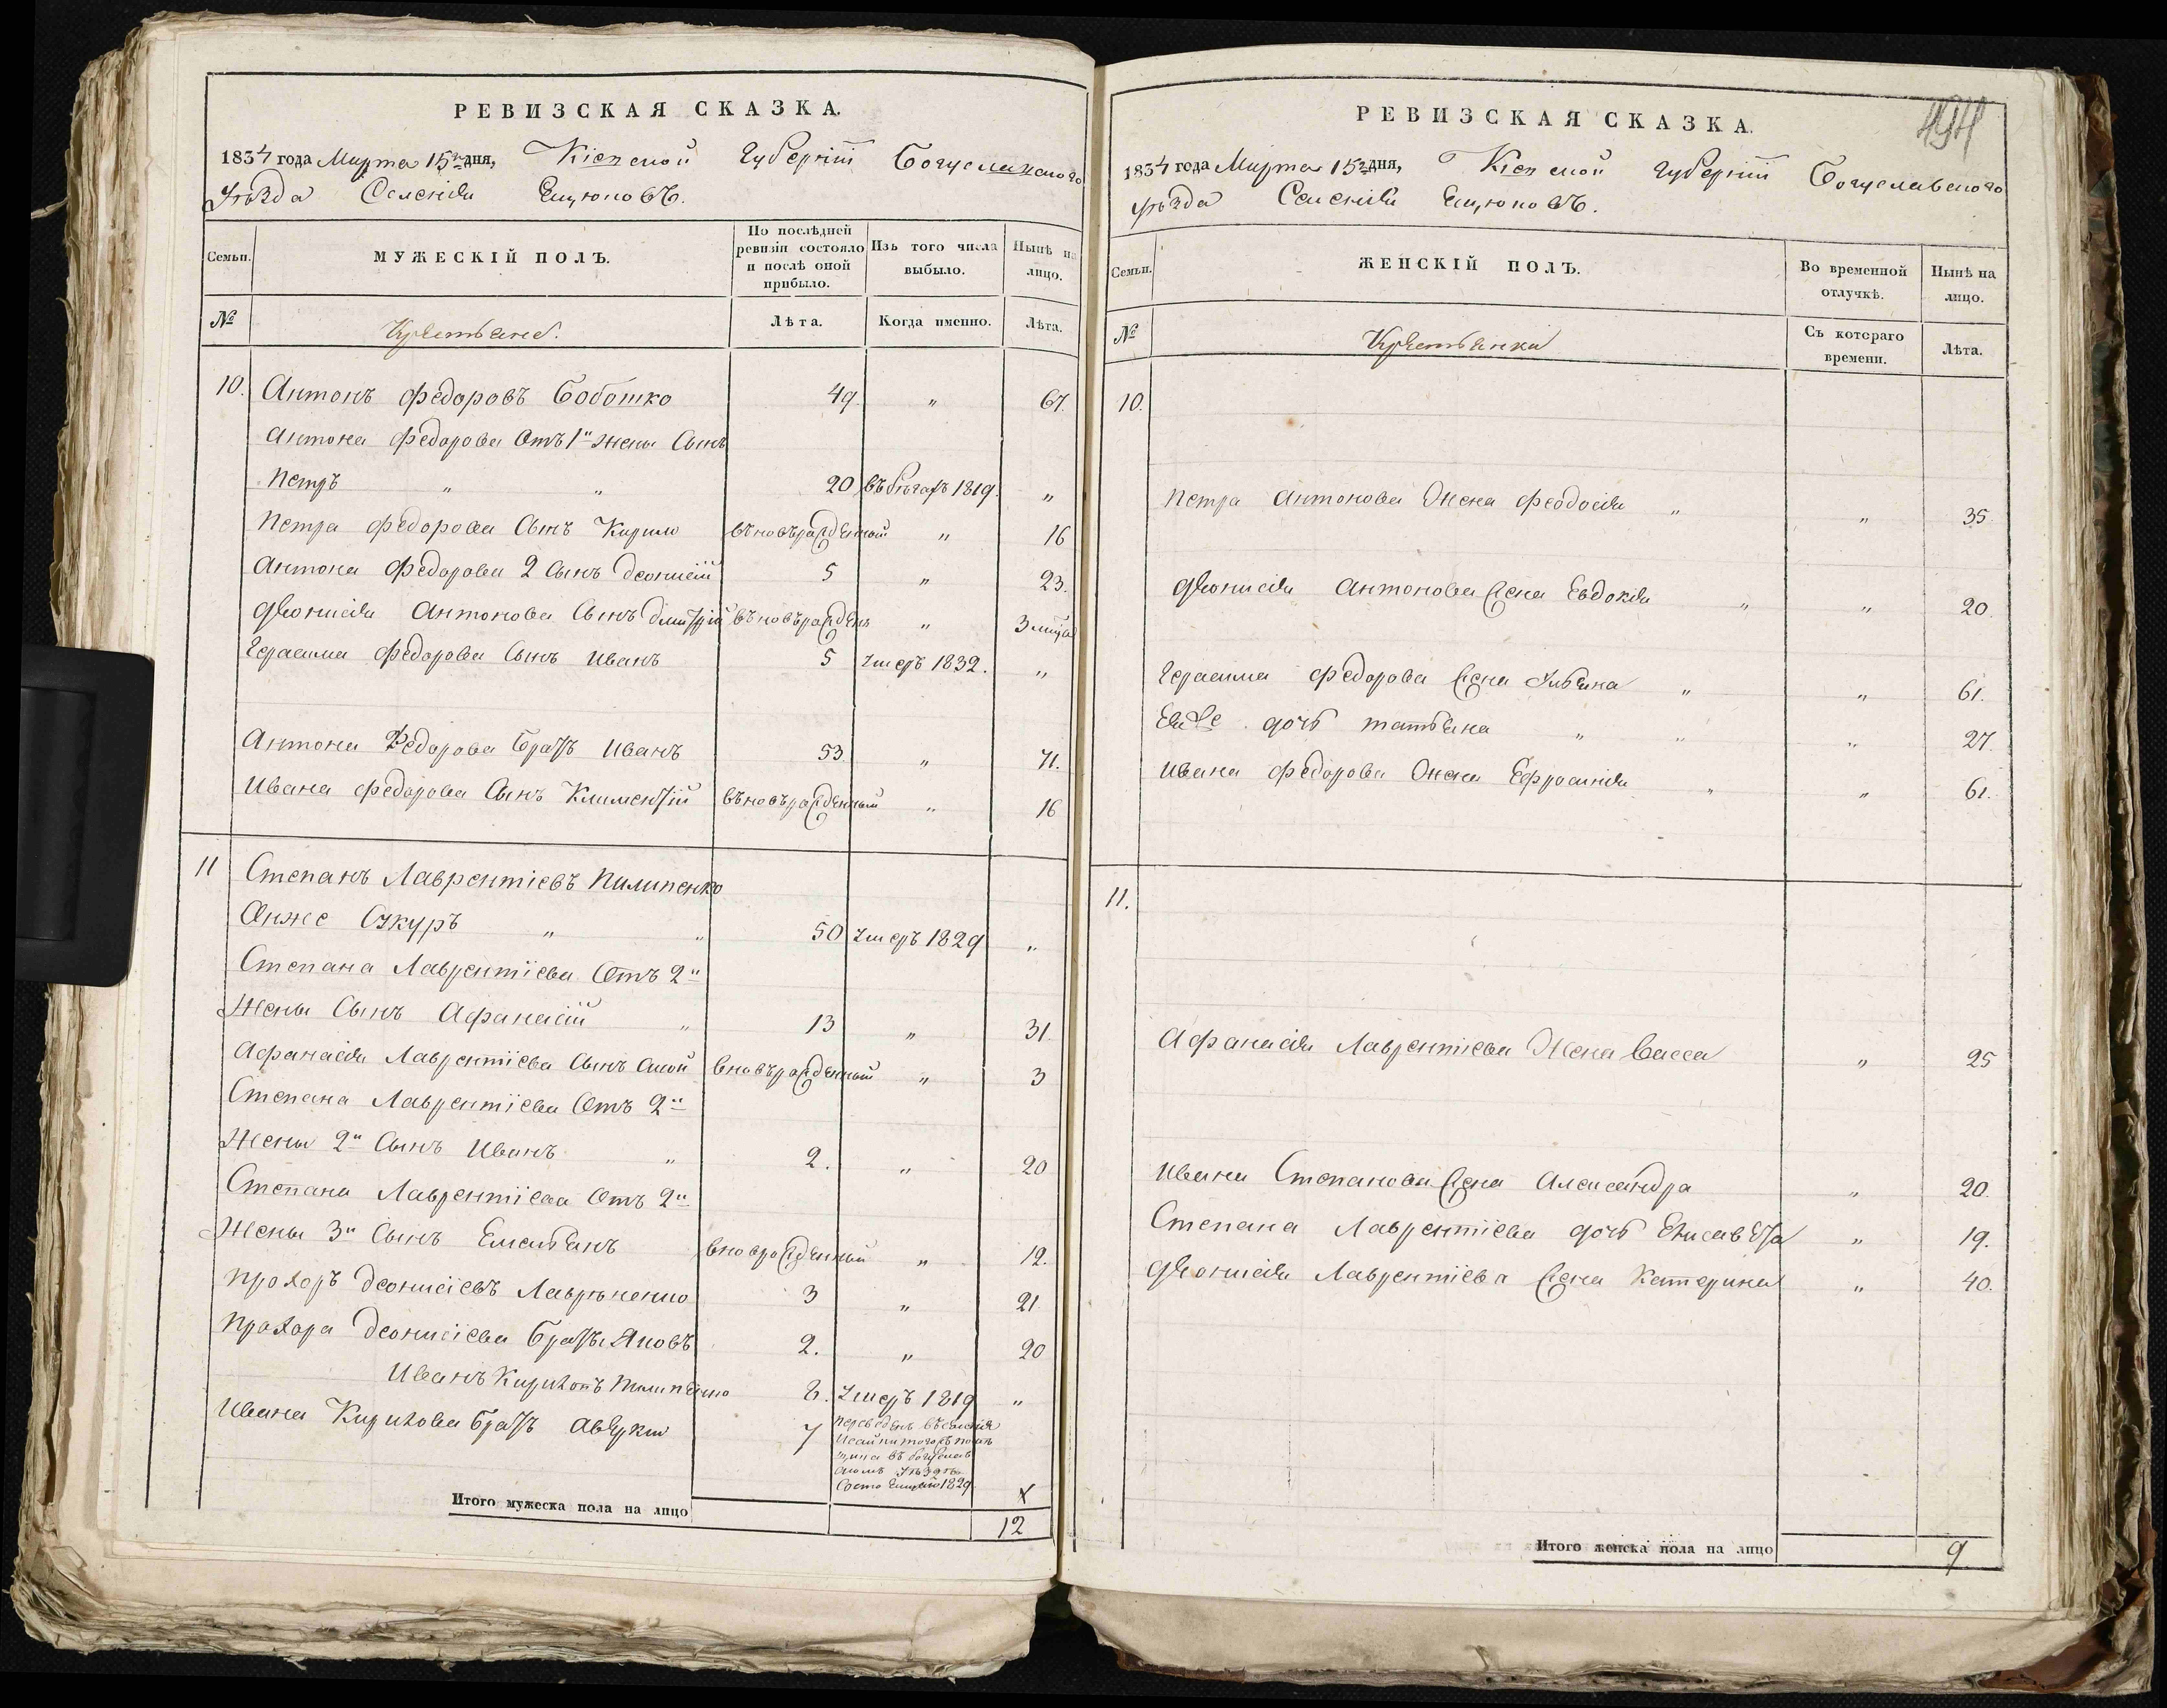 РЕВИЗСКАЯ СКАЗКА.
1834 года Марта 15го дня, Кіевской Губерніи Богуславского
уѣзда Селенія Ящюковъ.
Семьи. МУЖЕСКІЙ ПОЛЪ. По послѣдней ревизіи состояло и послѣ оной прибыло. Изъ того числа выбыло. Нынѣ на лицо.
№ Крестьяне. Лѣта. Когда именно. Лѣта.
10. Антонъ Федоровъ Бобошко 49. " 67.
Антона Федорова Отъ 1й жены Сынъ
Петръ " " 20 въ бѣгахъ 1819. "
Петра Федорова Сынъ Кирило въновърожденный " 16
Антона Федорова 2 Сынъ Деонисій 5 " 23.
Деонисія Антонова Сынъ Дмитрій въновърожденъ " 3 мѣца
Герасима Федорова Сынъ Иванъ 5 умеръ 1832. "
Антона Федорова Братъ Иванъ 53. " 71.
Ивана Федорова Сынъ Климентій въновърожденный " 16
11 Степанъ Лаврентіевъ Пилипенко
Онже Сукуръ " " 50 умеръ 1829 "
Степана Лаврентіева Отъ 2й
Жены Сынъ Афанасій " 13 " 31.
Афанасія Лаврентіева Сынъ вновърожденный " 3
Степана Лаврентіева Отъ 2й
Жены 2й Сынъ Иванъ " 2. " 20
Степана Лаврентіева Отъ 2й
Жены 3й Сынъ Емельянъ вноврожденный " 12.
Прохоръ Деонисіевъ Лавриненко 3 " 21.
Прохора Деонисіева Братъ Яковъ 2. " 20
Иванъ Кириковъ Пилипенко 8. умеръ 1819 "
Ивана Кирикова Братъ Аверкій 7 переведенъ въ селенія
въ богуслав
скомъ уѣздѣ
1829. х
Итого мужеска пола на лицо 12
494
РЕВИЗСКАЯ СКАЗКА.
1834 года Марта 15го дня, Кіевской губерніи Богуславского
уѣзда Селенія Ящюковъ.
Семьи. ЖЕНСКІЙ ПОЛЪ. Во временной отлучкѣ. Нынѣ на лицо.
№ Крестьянки Съ котораго времени. Лѣта.
10.
Петра Антонова Жена Феодосія " " 35.
Деонисія Антонова Жена Евдокія " " 20.
Герасима Федорова Жена Ульяна " " 61.
Ея же дочь Татьяна " " " 27.
Ивана Федорова Жена Ефросинія " " 61.
11.
Афанасія Лаврентіева Жена Васса " 25
Ивана Степанова Жена Александра " 20.
Степана Лаврентіева дочь Елисавета " 19.
Деонисія Лаврентіева Жена Катерина " 40.
Итого женска пола на лицо 9